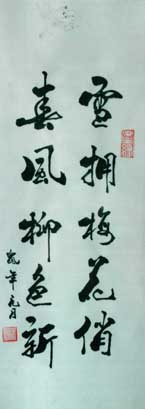 雪拥梅花俏
春风柳色新
鼠年元月